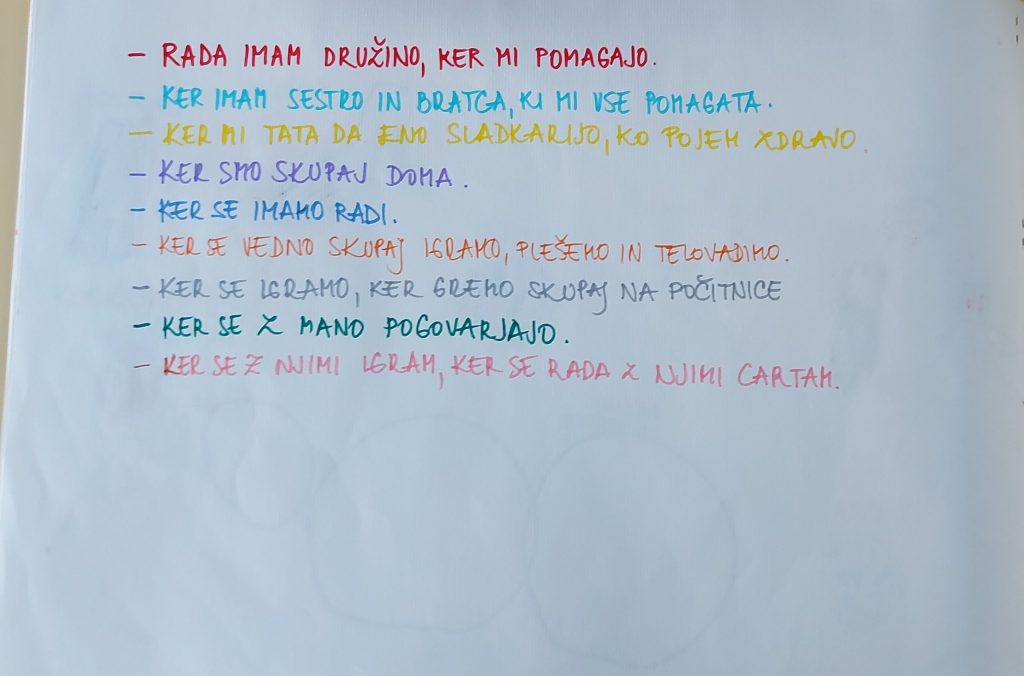 - RADA IMAM DRUŽINO, KER MI POMAGAJO.
- KER IMAM SESTRO IN BRATCA, KI MI VSE POMAGATA.
- KER MI TATA DA ENO SLADKARIJO, KO POJEM ZDRAVO.
- KER SMO SKUPAJ DOMA.
- KER SE IMAMO RADI.
- KER SE VEDNO SKUPAJ IGRAMO, PLEŠEMO IN TELOVADIMO.
- KER SE IGRAMO, KER GREMO SKUPAJ NA POČITNICE
- KER SE Z MANO POGOVARJAJO.
- KER SE Z NJIMI IGRAM, KER SE RADA Z NJIMI CARTAM.